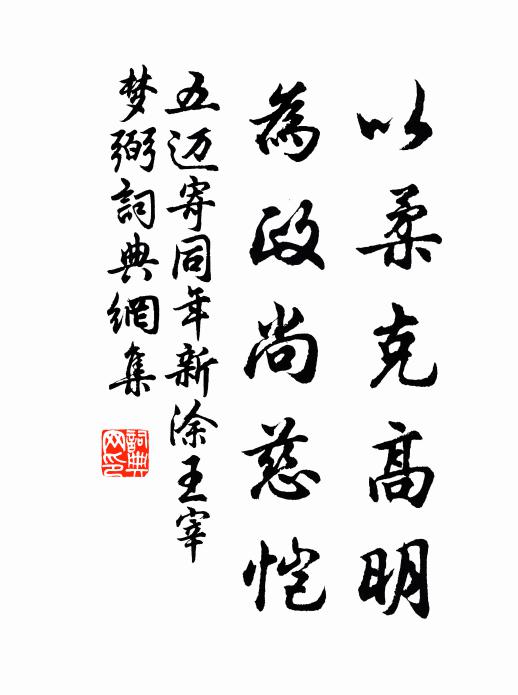 以柔克高明
為政尚慈恺
五迈寄同年新涂王宰
梦弼詞典網集
詞典网印